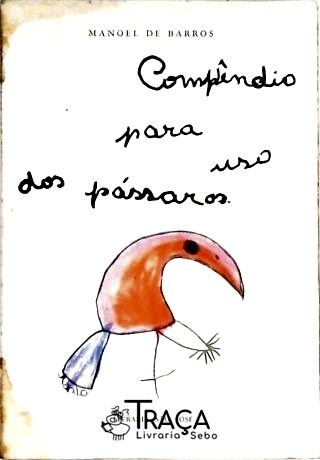 MANOEL DE BARROS
Compêndio
para
uso
dos pássaros.
TRAÇA
Livraria Sebo